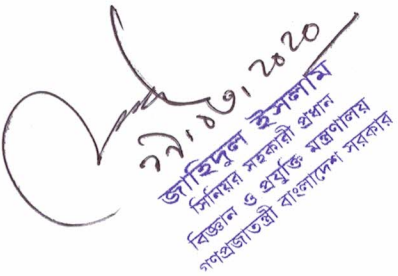 ২৯.০৩.২০২০
জাহিদুল ইসলাম
সিনিয়র সহকারী প্রধান
বিজ্ঞান ও প্রযুক্তি মন্ত্রণালয়
গণপ্রজাতন্ত্রী বাংলাদেশ সরকার